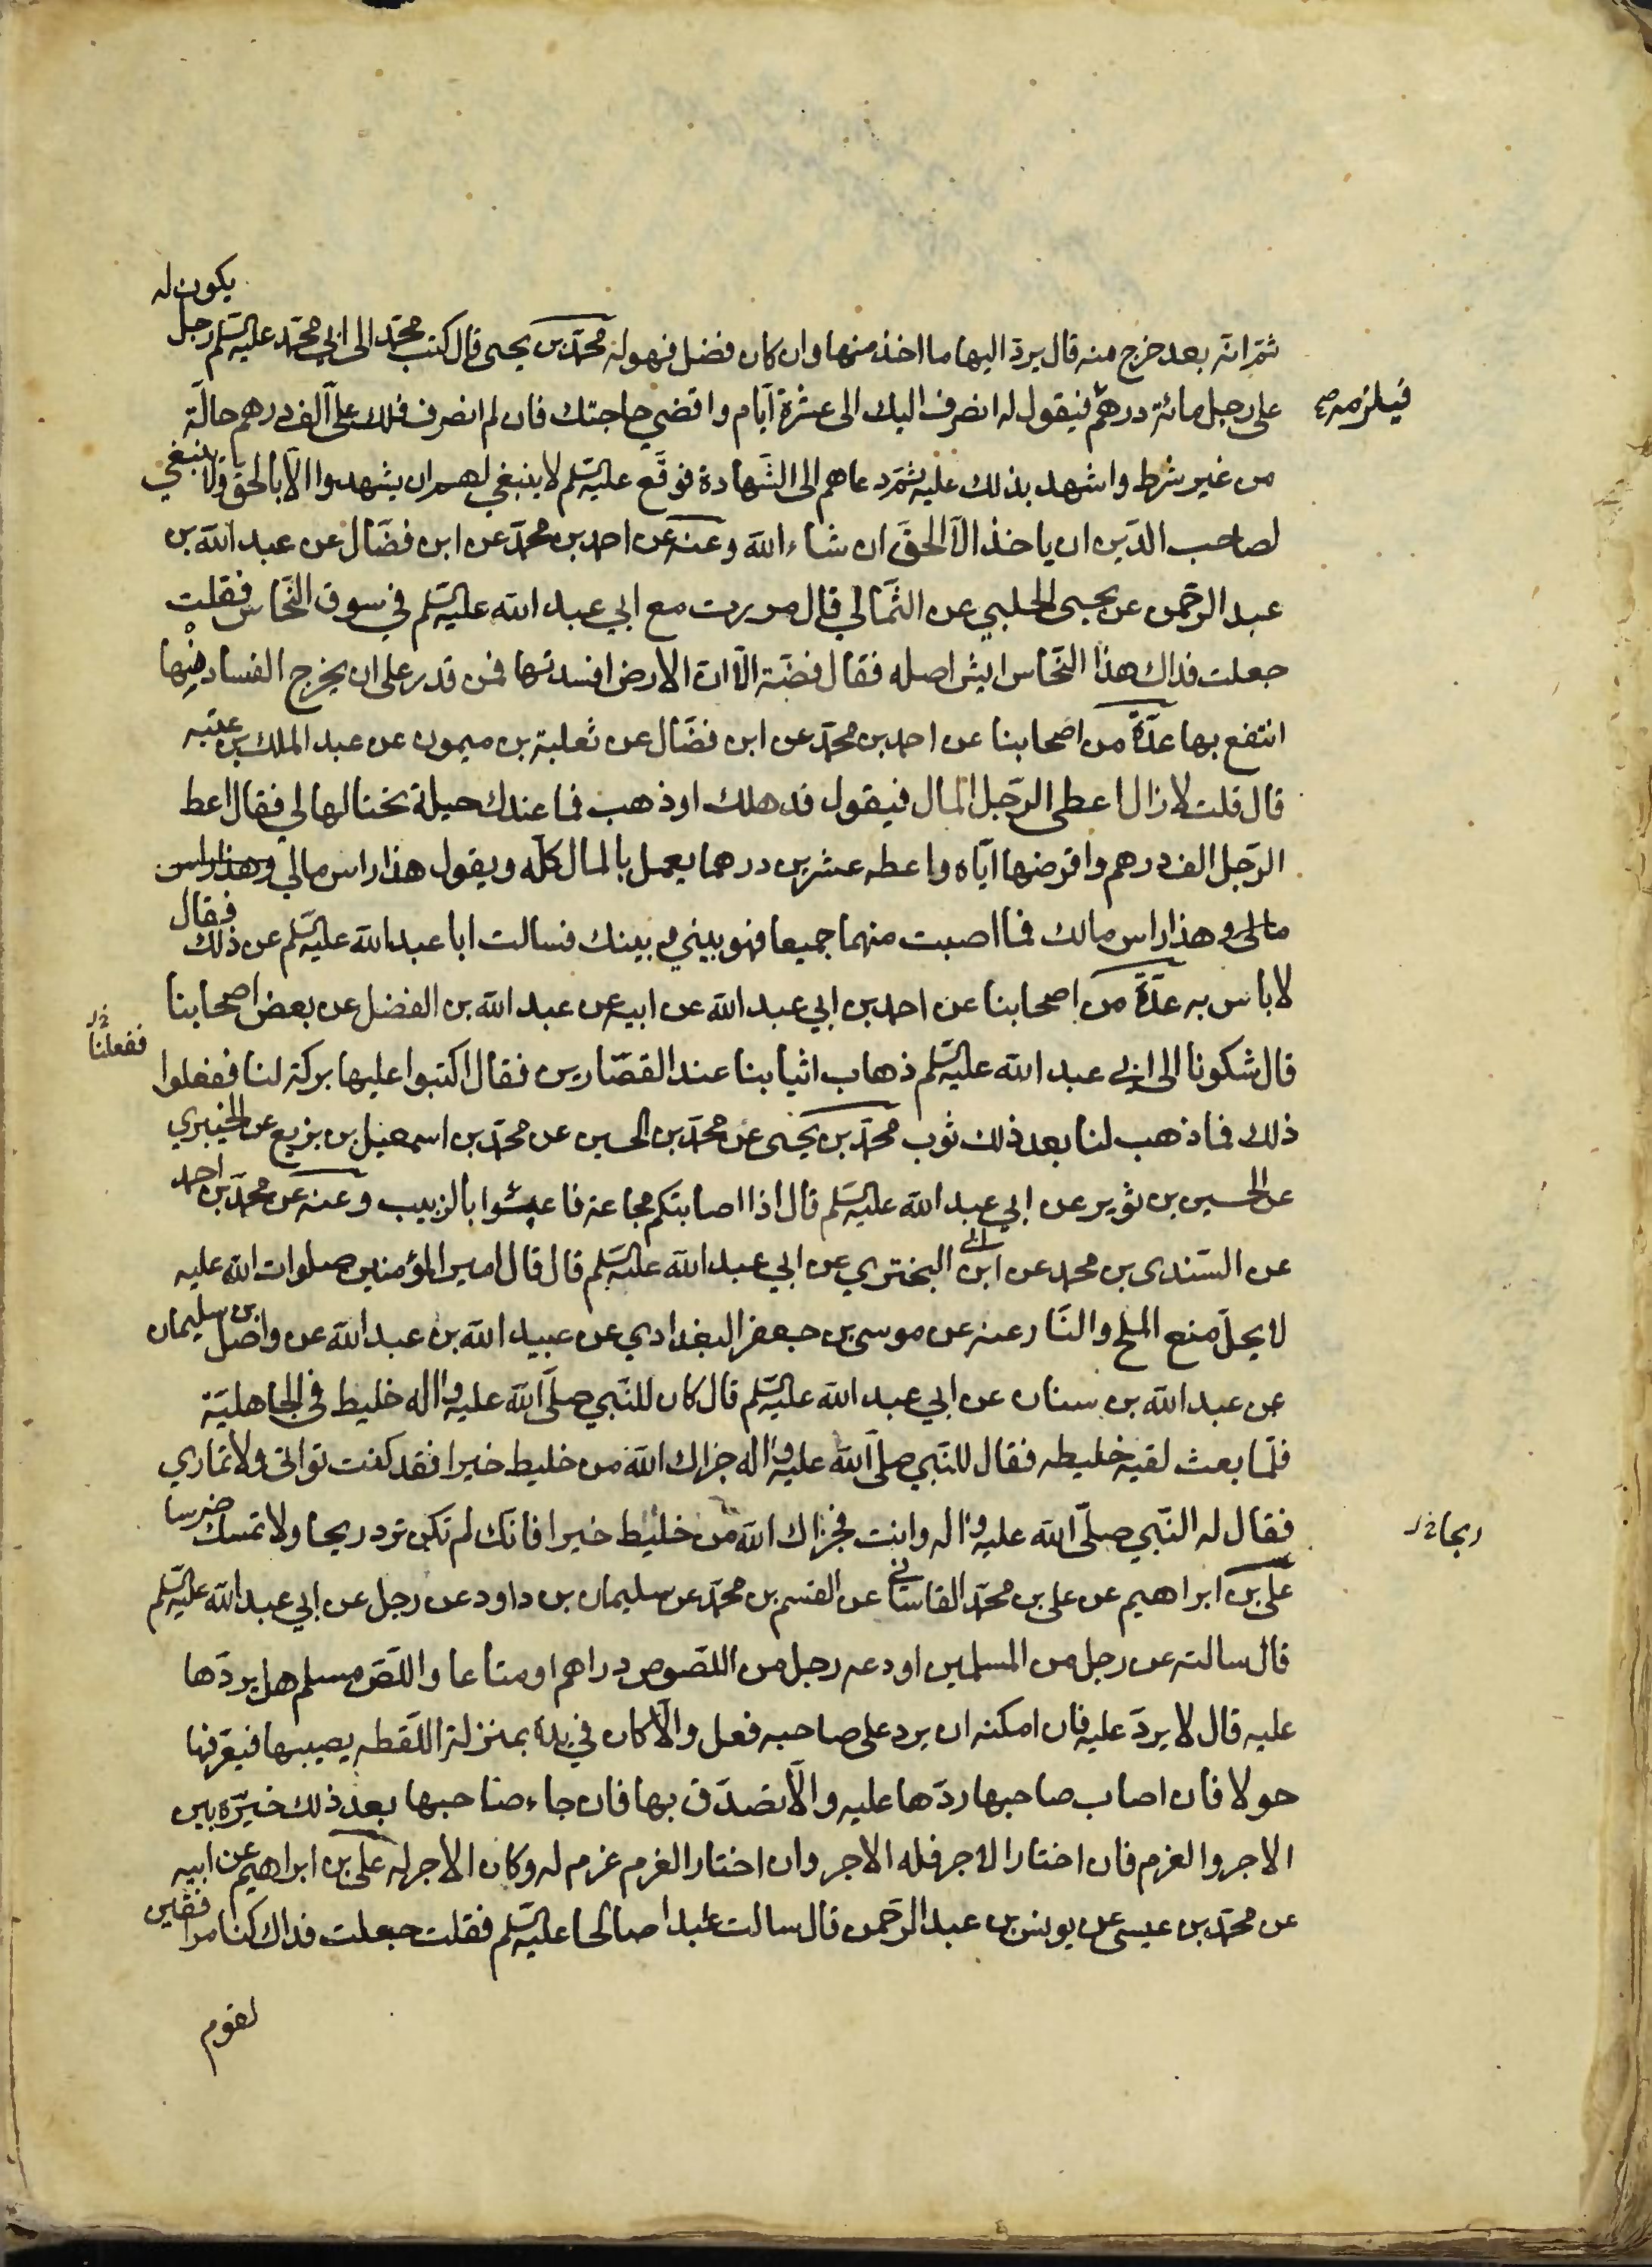 ثمّ انّه بعد خرج منه قال يردّ اليها ما اخذ منها وان كان فضل فهو له محمّد بن يحيى قال كتب محمّد الى ابي محمّد عليه السّلم رجل يكون له
على رجل مائة درهم فيقول له انصرف اليك الى عشرة ايّام واقضي حاجتك فان لم انصرف فلك علىّ الف درهم حالّة
فيلزمه صح
من غير شرط واشهد بذلك عليه ثمّ دعاهم الى الشّهادة فوقّع عليه السّلم لا ينبغي لهم ان يشهدوا الّا بالحقّ ولا ينبغي
لصاحب الدّين ان ياخذ الّا الحقّ ان شاء الله وعنه عن احمد بن محمّد عن ابن فضّال عن عبد الله بن
عبد الرّحمن عن يحيى الحلبي عن الثّمالي قال مررت مع ابي عبد الله عليه السّلم في سوق النّحاس فقلت
جعلت فداك هذا النّحاس ايش اصله فقال فضّة الّا انّ الارض افسدتها فمن قدر على ان يخرج الفساد منها
انتفع بها عدّة من اصحابنا عن احمد بن محمّد عن ابن فضّال عن ثعلبة بن ميمون عن عبد الملك بن عتبه
قال قلت لا زال اعطى الرّجل المال فيقول قد هلك او ذهب فما عندك حيلة تحتالها لي فقال اعط
الرّجل الف درهم واقرضها ايّاه واعطه عشرين درهما يعمل بالمال كلّه ويقول هذا راس مالي وهذا راس
مالى وهذا راس مالك فما اصبت منهما جميعا فهو بيني وبينك فسالت ابا عبد الله عليه السّلم عن ذلك فقال
لا باس به عدّة من اصحابنا عن احمد بن ابي عبد الله عن ابيه عن عبد الله بن الفضل عن بعض اصحابنا
قال شكونا الى ابي عبد الله عليه السّلم ذهاب اثيابنا عند القصّارين فقال اكتبوا عليها بركة لنا ففعلوا
ففعلنا
ذلك فما ذهب لنا بعد ذلك ثوب محمّد بن يحيى عن محمّد بن الحسين عن محمّد بن اسمعيل بن بزيع عن الخيبري
عن الحسين بن ثوير عن ابي عبد الله عليه السّلم قال اذا اصابتكم مجاعة فاعبثوا بالزبيب وعنه عن محمّد بن احمد
عن السّندى بن محمد عن ابن ابي البختري عن ابي عبد الله عليه السّلم قال قال امير المؤمنين صلوات الله عليه
لا يحلّ منع الملح والنّار عنه عن موسى بن جعفر البغدادي عن عبيد الله بن عبد الله عن واصل بن سليمان
عن عبد الله بن سنان عن ابي عبد الله عليه السّلم قال كان للنّبي صلّى الله عليه واله خليط فى الجاهليّة
فلمّا بعث لقيه خليطه فقال للنّبي صلّى الله عليه واله جزاك الله من خليط خيرا فقد كنت تواتى ولا تماري
فقال له النّبي صلّى الله عليه واله وانت فجزاك الله من خليط خيرا فانّك لم تكن تردّ ريحا ولا تمسك ضرسا
ربحا
علي بن ابراهيم عن على بن محمّد القاساني عن القسم بن محمّد عن سليمان بن داود عن رجل عن ابي عبد الله عليه السّلم
قال سالته عن رجل من المسلمين اودعه رجل من اللصّوص دراهم او متاعا واللّصّ مسلم هل يردّها
عليه قال لا يردّ عليه فان امكنه ان يرد على صاحبه فعل والّا كان في يده بمنزلة اللّقطه يصيبها فيعرّفها
حولا فان اصاب صاحبها ردّها عليه والّا تصدّق بها فان جاء صاحبها بعد ذلك خيّره بين
الاجر والغرم فان اختار الاجر فله الاجر وان اختار الغرم غرم له وكان الاجر له على بن ابراهيم عن ابيه
عن محمّد بن عيسى عن يونس بن عبد الرّحمن قال سالت عبدا صالحا عليه السّلم فقلت جعلت فداك كنا مرافقين
لقوم